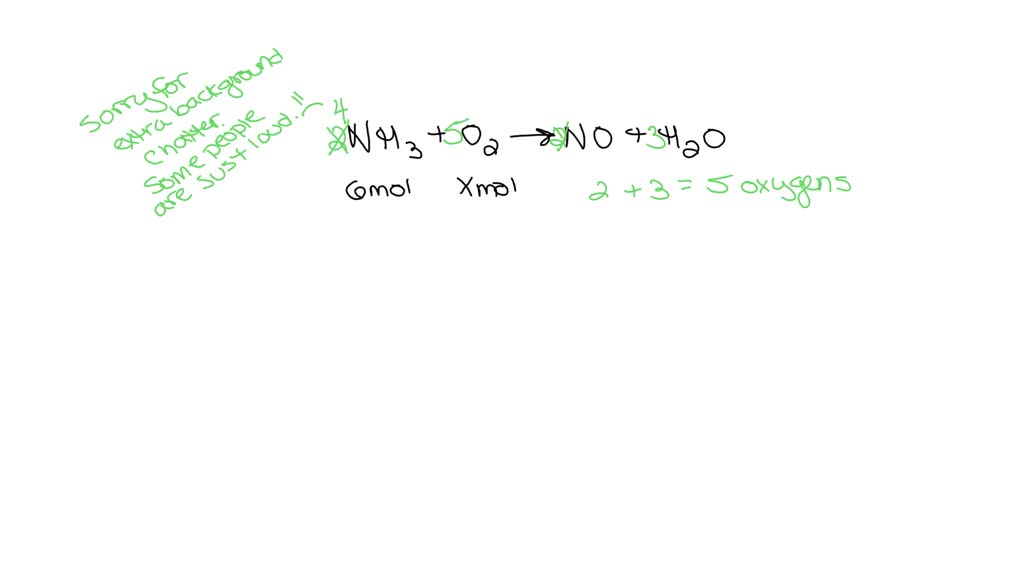 Sorry for
extra background
chatter.
Some people
are just loud!!
4
2NH3 + 5O2 → 2NO + 3H2O
6mol Xmol
2 + 3 = 5 oxygens